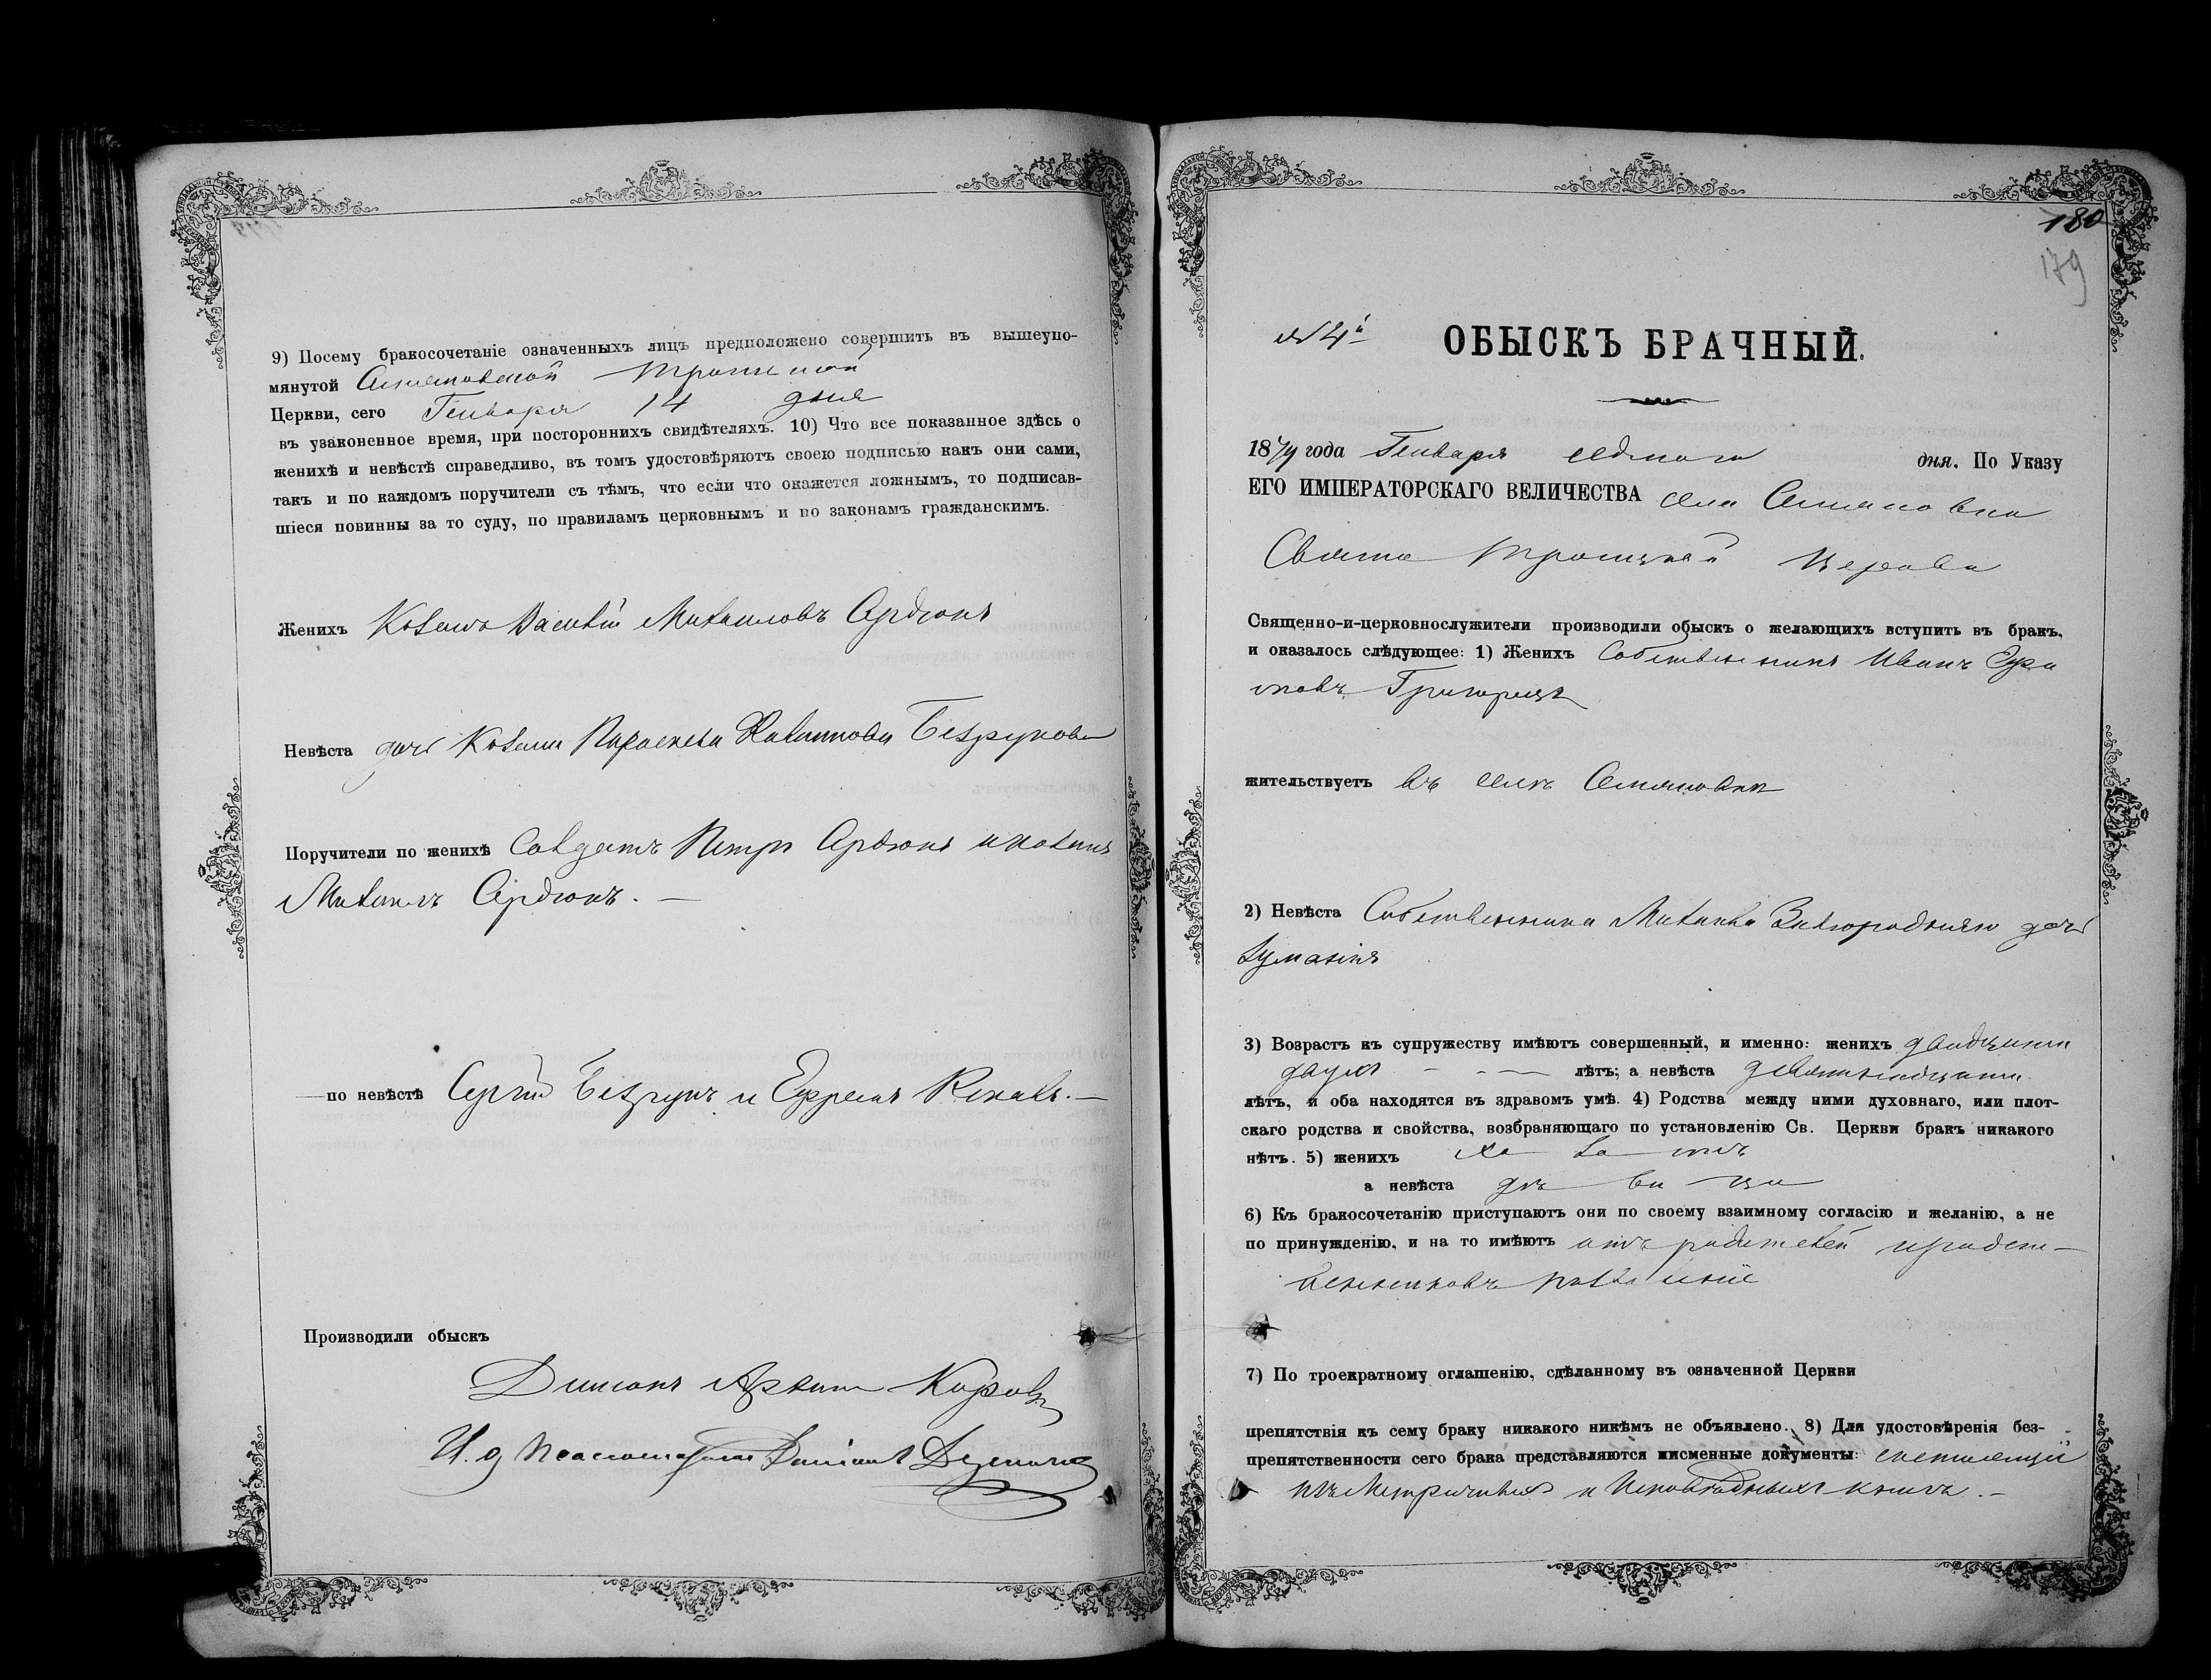 9) Посему бракосочетаніе означенныхъ лицъ предположено совершить въ вышеупо-
мянутой Семеновской Троицкой
Церкви, сего Генваря 14 дня
въ узаконенное время, при постороннихъ свидѣтеляхъ. 10) Что все показанное здѣсь о
женихѣ и невѣстѣ справедливо, въ томъ удостовѣряютъ своею подписью какъ они сами,
такъ и по каждомъ поручители съ тѣмъ, что если что окажется ложнымъ, то подписав-
шіеся повинны за то суду, по правиламъ церковнымъ и по законамъ гражданскимъ.
Женихъ Козакъ Василій Михаиловъ Сердюкъ
Невѣста дочь Козака Параскева Безрукова
Поручители по женихѣ Солдатъ Петръ Сердюкъ и козакъ
Михаилъ Сердюкъ. —
— по невѣстѣ Сергій Безрукъ и Ефремъ
Производили обыскъ
Диконъ
И. д Псаломщика
180
179
№ 4й
ОБЫСКЪ БРАЧНЫЙ.
18 года Генваря седмаго дня. По Указу
ЕГО ИМПЕРАТОРСКАГО ВЕЛИЧЕСТВА села Семеновки
Свято Троицкой Церкви
Священно-и-церковнослужители производили обыскъ о желающихъ вступить въ бракъ,
и оказалось слѣдующее: 1) Женихъ Собственникъ Иванъ
жительствуетъ въ селѣ Семеновкѣ
2) Невѣста Собственника дочь
3) Возрастъ къ супружеству имѣютъ совершенный, и именно: женихъ двадцати
двухъ — — лѣтъ; а невѣста девятнадцати
лѣтъ, и оба находятся въ здравомъ умѣ. 4) Родства между ними духовнаго, или плот-
скаго родства и свойства, возбраняющаго по установленію Св. Церкви бракъ никакого
нѣтъ. 5) женихъ хо ло стъ
а невѣста дѣ ви ца
6) Къ бракосочетанію приступаютъ они по своему взаимному согласію и желанію, а не
по принужденію, и на то имѣютъ отъ родителей и родст-
венниковъ позволеніе
7) По троекратному оглашенію, сдѣланному въ означенной Церкви
препятствія къ сему браку никакого никѣмъ не объявлено. 8) Для удостовѣренія без-
препятственности сего брака представляются письменные документы:
изъ Метрическихъ и Исповѣдныхъ книгъ. —